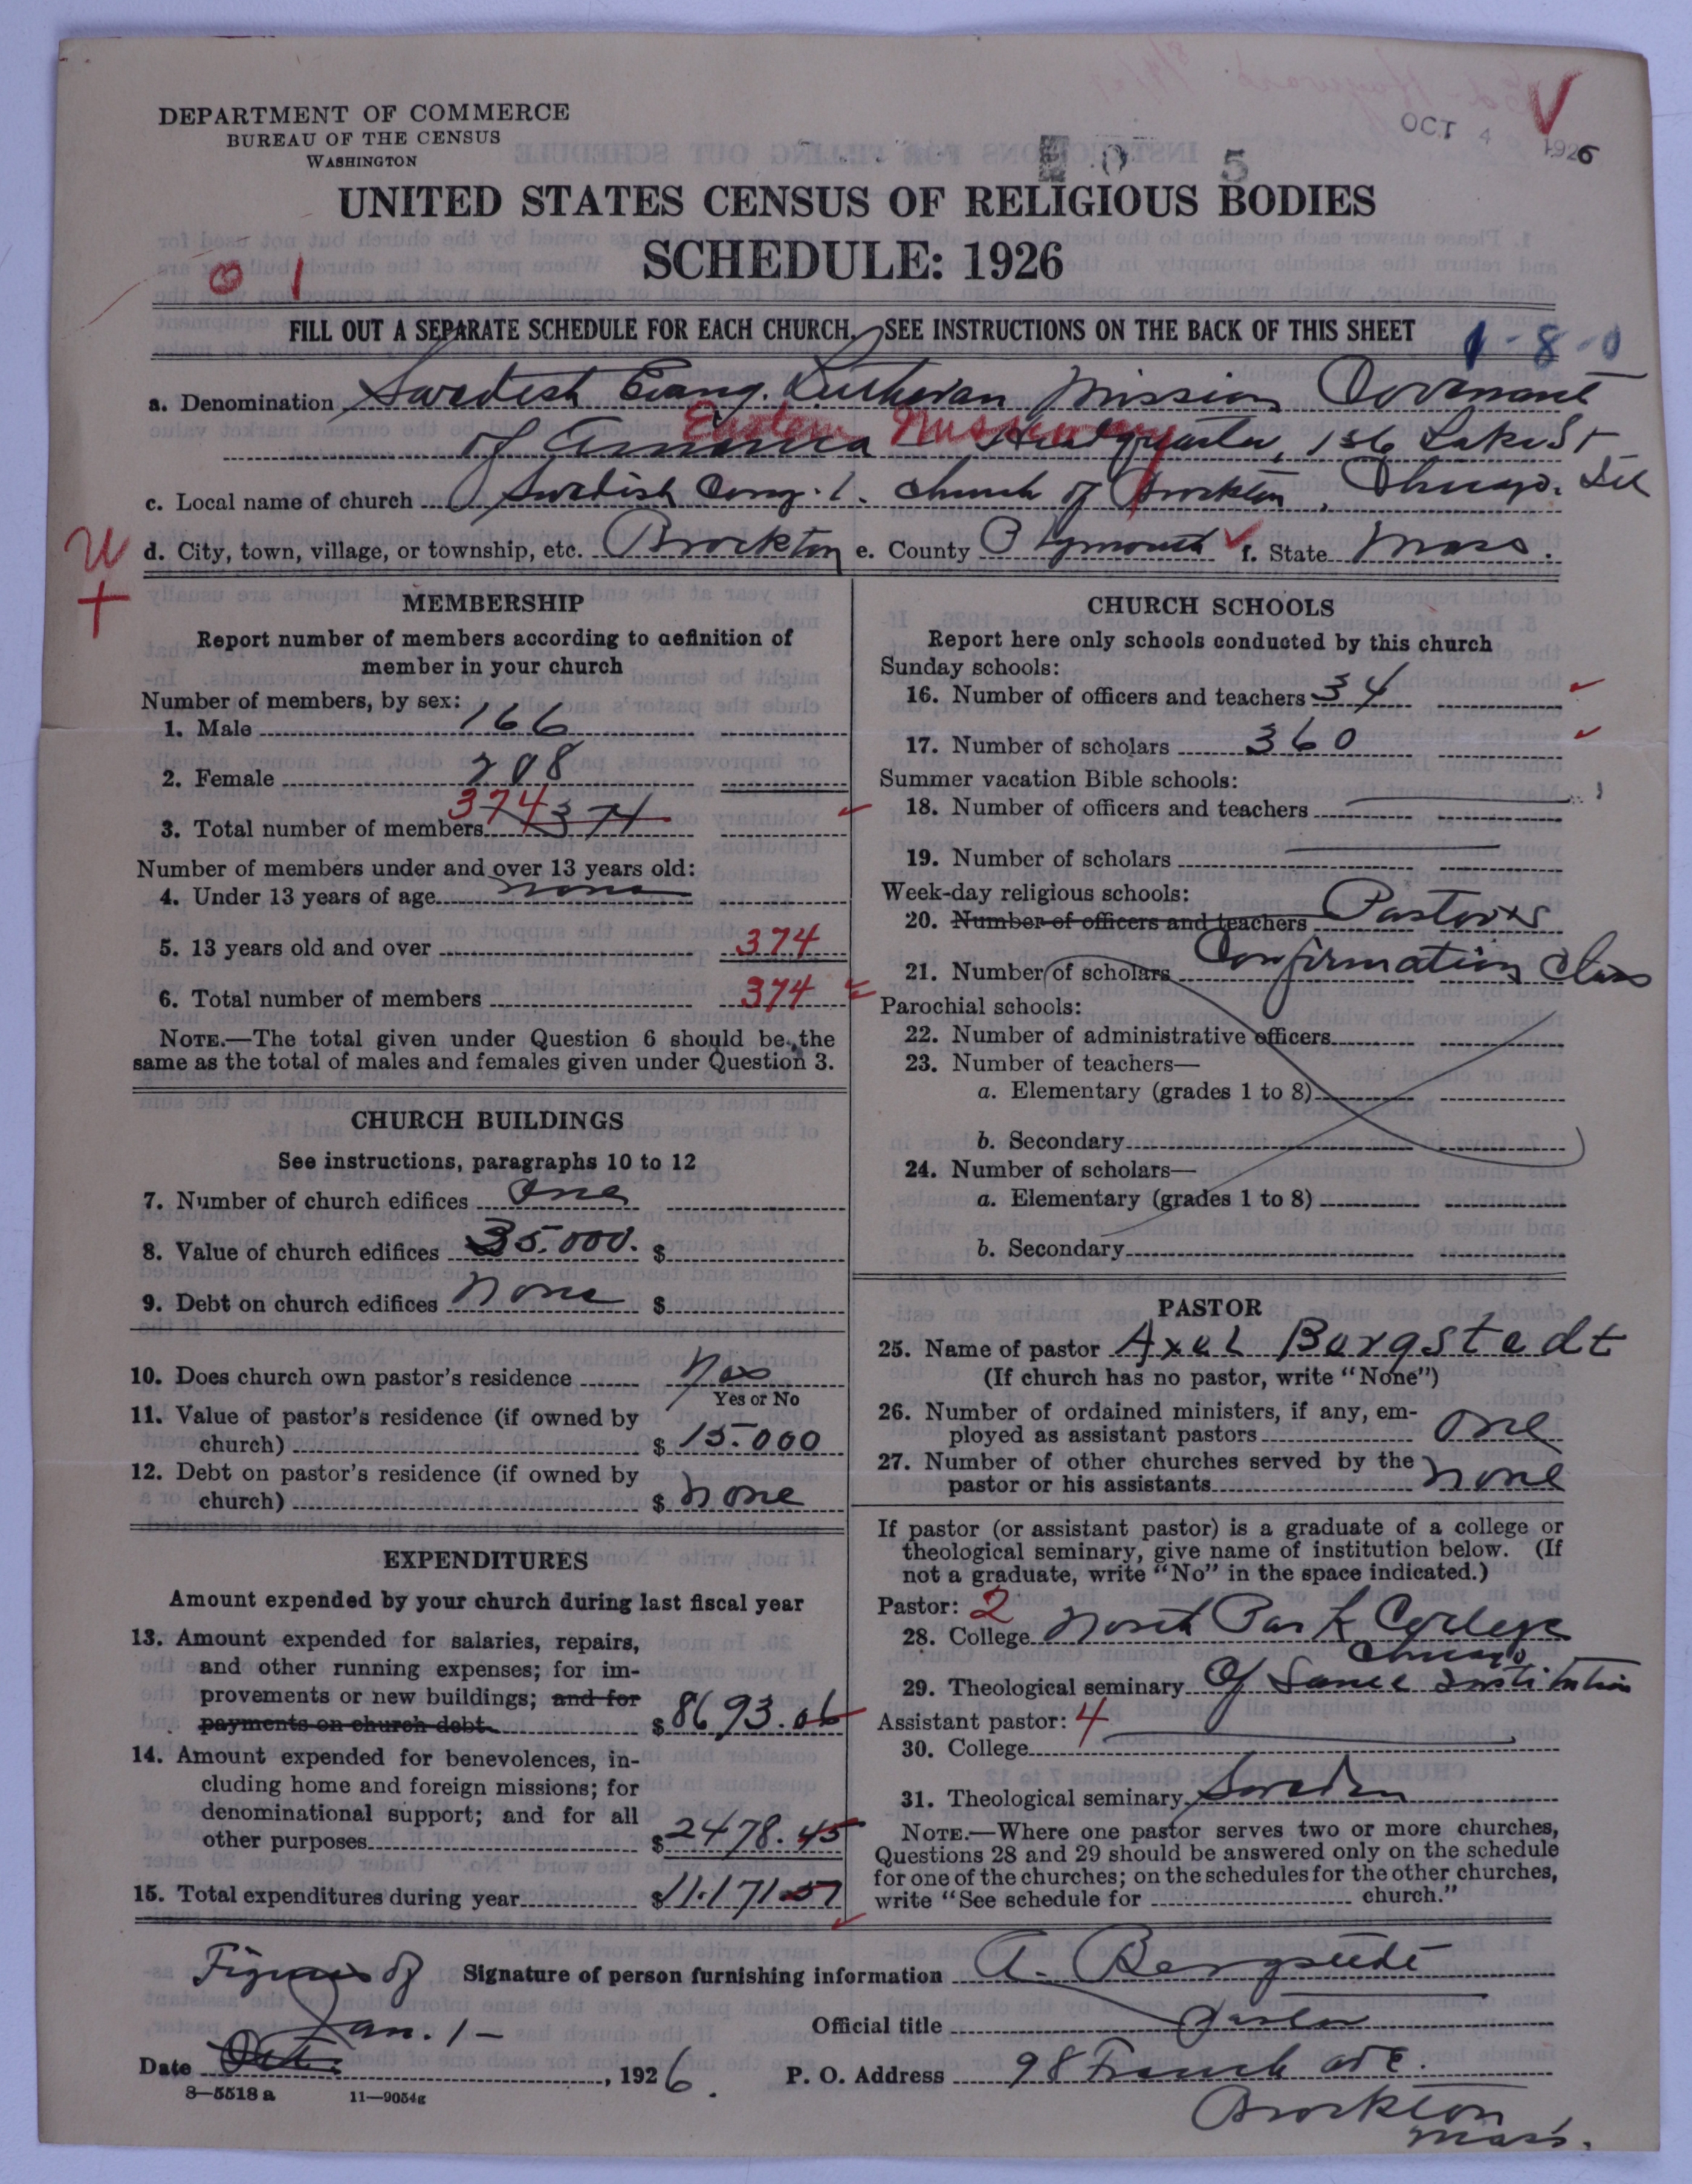 OCT 4 1926
DEPARTMENT OF COMMERCE
BUREAU OF THE CENSUS
WASHINGTON
UNITED STATES CENSUS OF RELIGIOUS BODIES
SCHEDULE: 1926
0 1
FILL OUT A SEPARATE SCHEDULE FOR EACH CHURCH. SEE INSTRUCTIONS ON THE BACK OF THIS SHEET
1-8-0
a. Denomination Swedish Evang. Lutheran Mission Covenant
of America Headquarter, 136 Lake St
Eastern Missionary
Chicago. Ill
c. Local name of church Swedish Cong'l. Church of Brockton,
d. City, town, village, or township, etc. Brockton e. County Plymouth f. State Mass.
MEMBERSHIP
Report number of members according to definition of
member in your church
Number of members, by sex:
1. Male 166
2. Female 208
3. Total number of members 374 374
Number of members under and over 13 years old:
4. Under 13 years of age none
5. 13 years old and over 374
6. Total number of members 374
NOTE.—The total given under Question 6 should be the
same as the total of males and females given under Question 3.
CHURCH BUILDINGS
See instructions, paragraphs 10 to 12
7. Number of church edifices One
8. Value of church edifices 35.000. $
9. Debt on church edifices None $
10. Does church own pastor's residence Yes
Yes or No
11. Value of pastor's residence (if owned by
church) $ 15.000
12. Debt on pastor's residence (if owned by
church) $ None
EXPENDITURES
Amount expended by your church during last fiscal year
13. Amount expended for salaries, repairs,
and other running expenses; for im-
provements or new buildings; and for
payments on church debt. $ 8693.06
14. Amount expended for benevolences, in-
cluding home and foreign missions; for
denominational support; and for all
other purposes $ 2478.45
15. Total expenditures during year $ 11.171.51
CHURCH SCHOOLS
Report here only schools conducted by this church
Sunday schools:
16. Number of officers and teachers 34
17. Number of scholars 360
Summer vacation Bible schools:
18. Number of officers and teachers
19. Number of scholars
Week-day religious schools:
20. Number of officers and teachers Pastors
21. Number of scholars Confirmation Class
Parochial schools:
22. Number of administrative officers
23. Number of teachers—
a. Elementary (grades 1 to 8)
b. Secondary
24. Number of scholars—
a. Elementary (grades 1 to 8)
b. Secondary
PASTOR
25. Name of pastor Axel Bergstedt
(If church has no pastor, write "None")
26. Number of ordained ministers, if any, em-
ployed as assistant pastors One
27. Number of other churches served by the
pastor or his assistants None
If pastor (or assistant pastor) is a graduate of a college or
theological seminary, give name of institution below. (If
not a graduate, write "No" in the space indicated.)
Pastor: 2
28. College North Park College
Chicago
29. Theological seminary Of Same Institution
Assistant pastor: 4
30. College
31. Theological seminary Sweden
NOTE.—Where one pastor serves two or more churches,
Questions 28 and 29 should be answered only on the schedule
for one of the churches; on the schedules for the other churches,
write "See schedule for church."
Figures of Signature of person furnishing information A. Bergstedt
Jan. 1- Official title Pastor
Date Oct. , 1926. P. O. Address 98 French ave.
8—5518 a 11—9054g
Brockton
Mass.